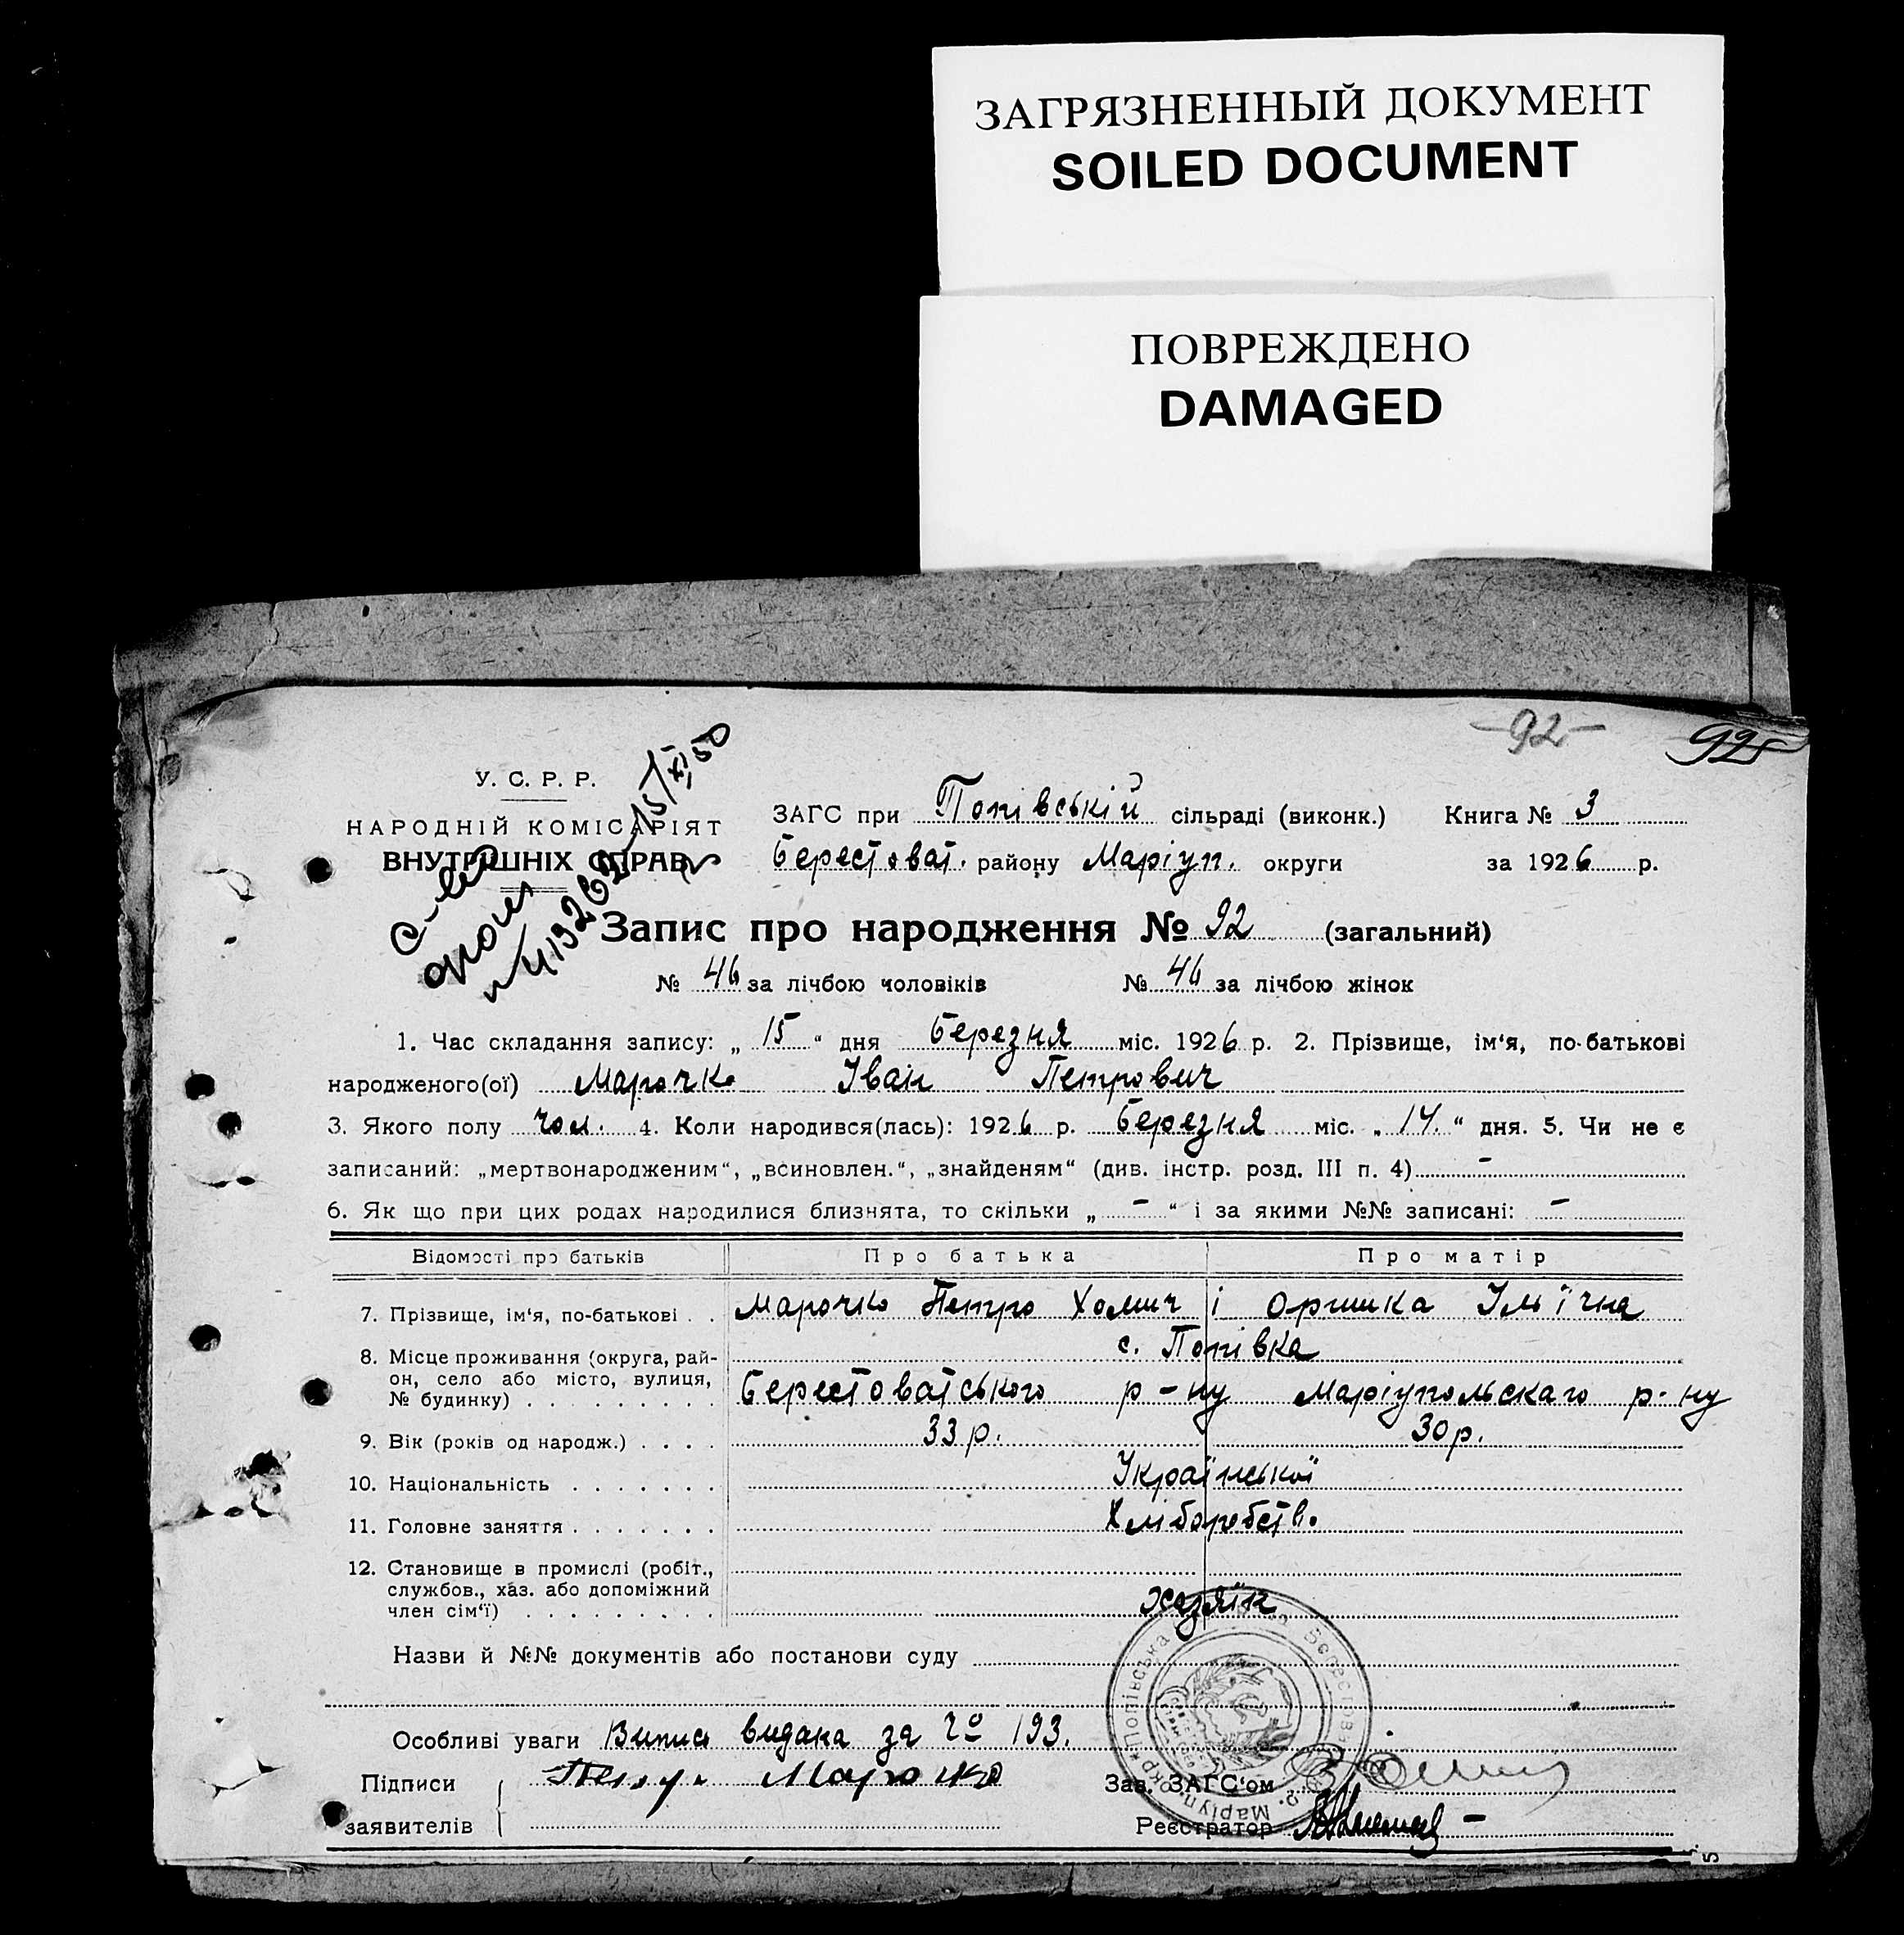 ЗАГРЯЗНЕННЫЙ ДОКУМЕНТ
SOILED DOCUMENT
ПОВРЕЖДЕНО
DAMAGED
-92-
92
У. С. Р. Р.
НАРОДНІЙ КОМІСАРІЯТ
ВНУТРІШНІХ СПРАВ
15/XI 50
ЗАГС при Попівській сільраді (виконк.) Книга № 3
Берестоват. району Маріуп. округи за 1926 р.
Запис про народження № 92 (загальний)
№ 46 за лічбою чоловіків № 46 за лічбою жінок
1. Час складання запису: „ 15 “ дня Березня міс. 1926 р. 2. Прізвище, ім‘я, по-батькові
народженого(ої) Марочко Іван Петрович
3. Якого полу чол. 4. Коли народився(лась): 1926 р. Березня міс. „ 14. “ дня. 5. Чи не є
записаний: „мертвонародженим“, „всиновлен.“, „знайденям“ (див. інстр. розд. III п. 4) -
6. Як що при цих родах народилися близнята, то скільки „ - “ і за якими №№ записані: -
Відомості про батьків Про батька Про матір
7. Прізвище, ім‘я, по-батькові . . Марочко Петро Хомич і Оришка Ільїчна
8. Місце проживання (округа, рай- с. Попівка
он, село або місто, вулиця,
№ будинку) . . . . . . . . . Берестоватського р-ну Маріупольскаго р-ну
9. Вік (років од народж.) . . . . 33 р. 30 р.
10. Національність . . . . . . . Української
11. Головне заняття . . . . . . . Хліборобств.
12. Становище в промислі (робіт.,
службов., хаз. або допоміжний
член сім‘ї) . . . . . . . . . Хазяїн
Назви й №№ документів або постанови суду
Особливі уваги Випис видана за № 193.
Підписи Петр. Марочко Зав. ЗАГС‘ом
заявителів Реєстратор
5